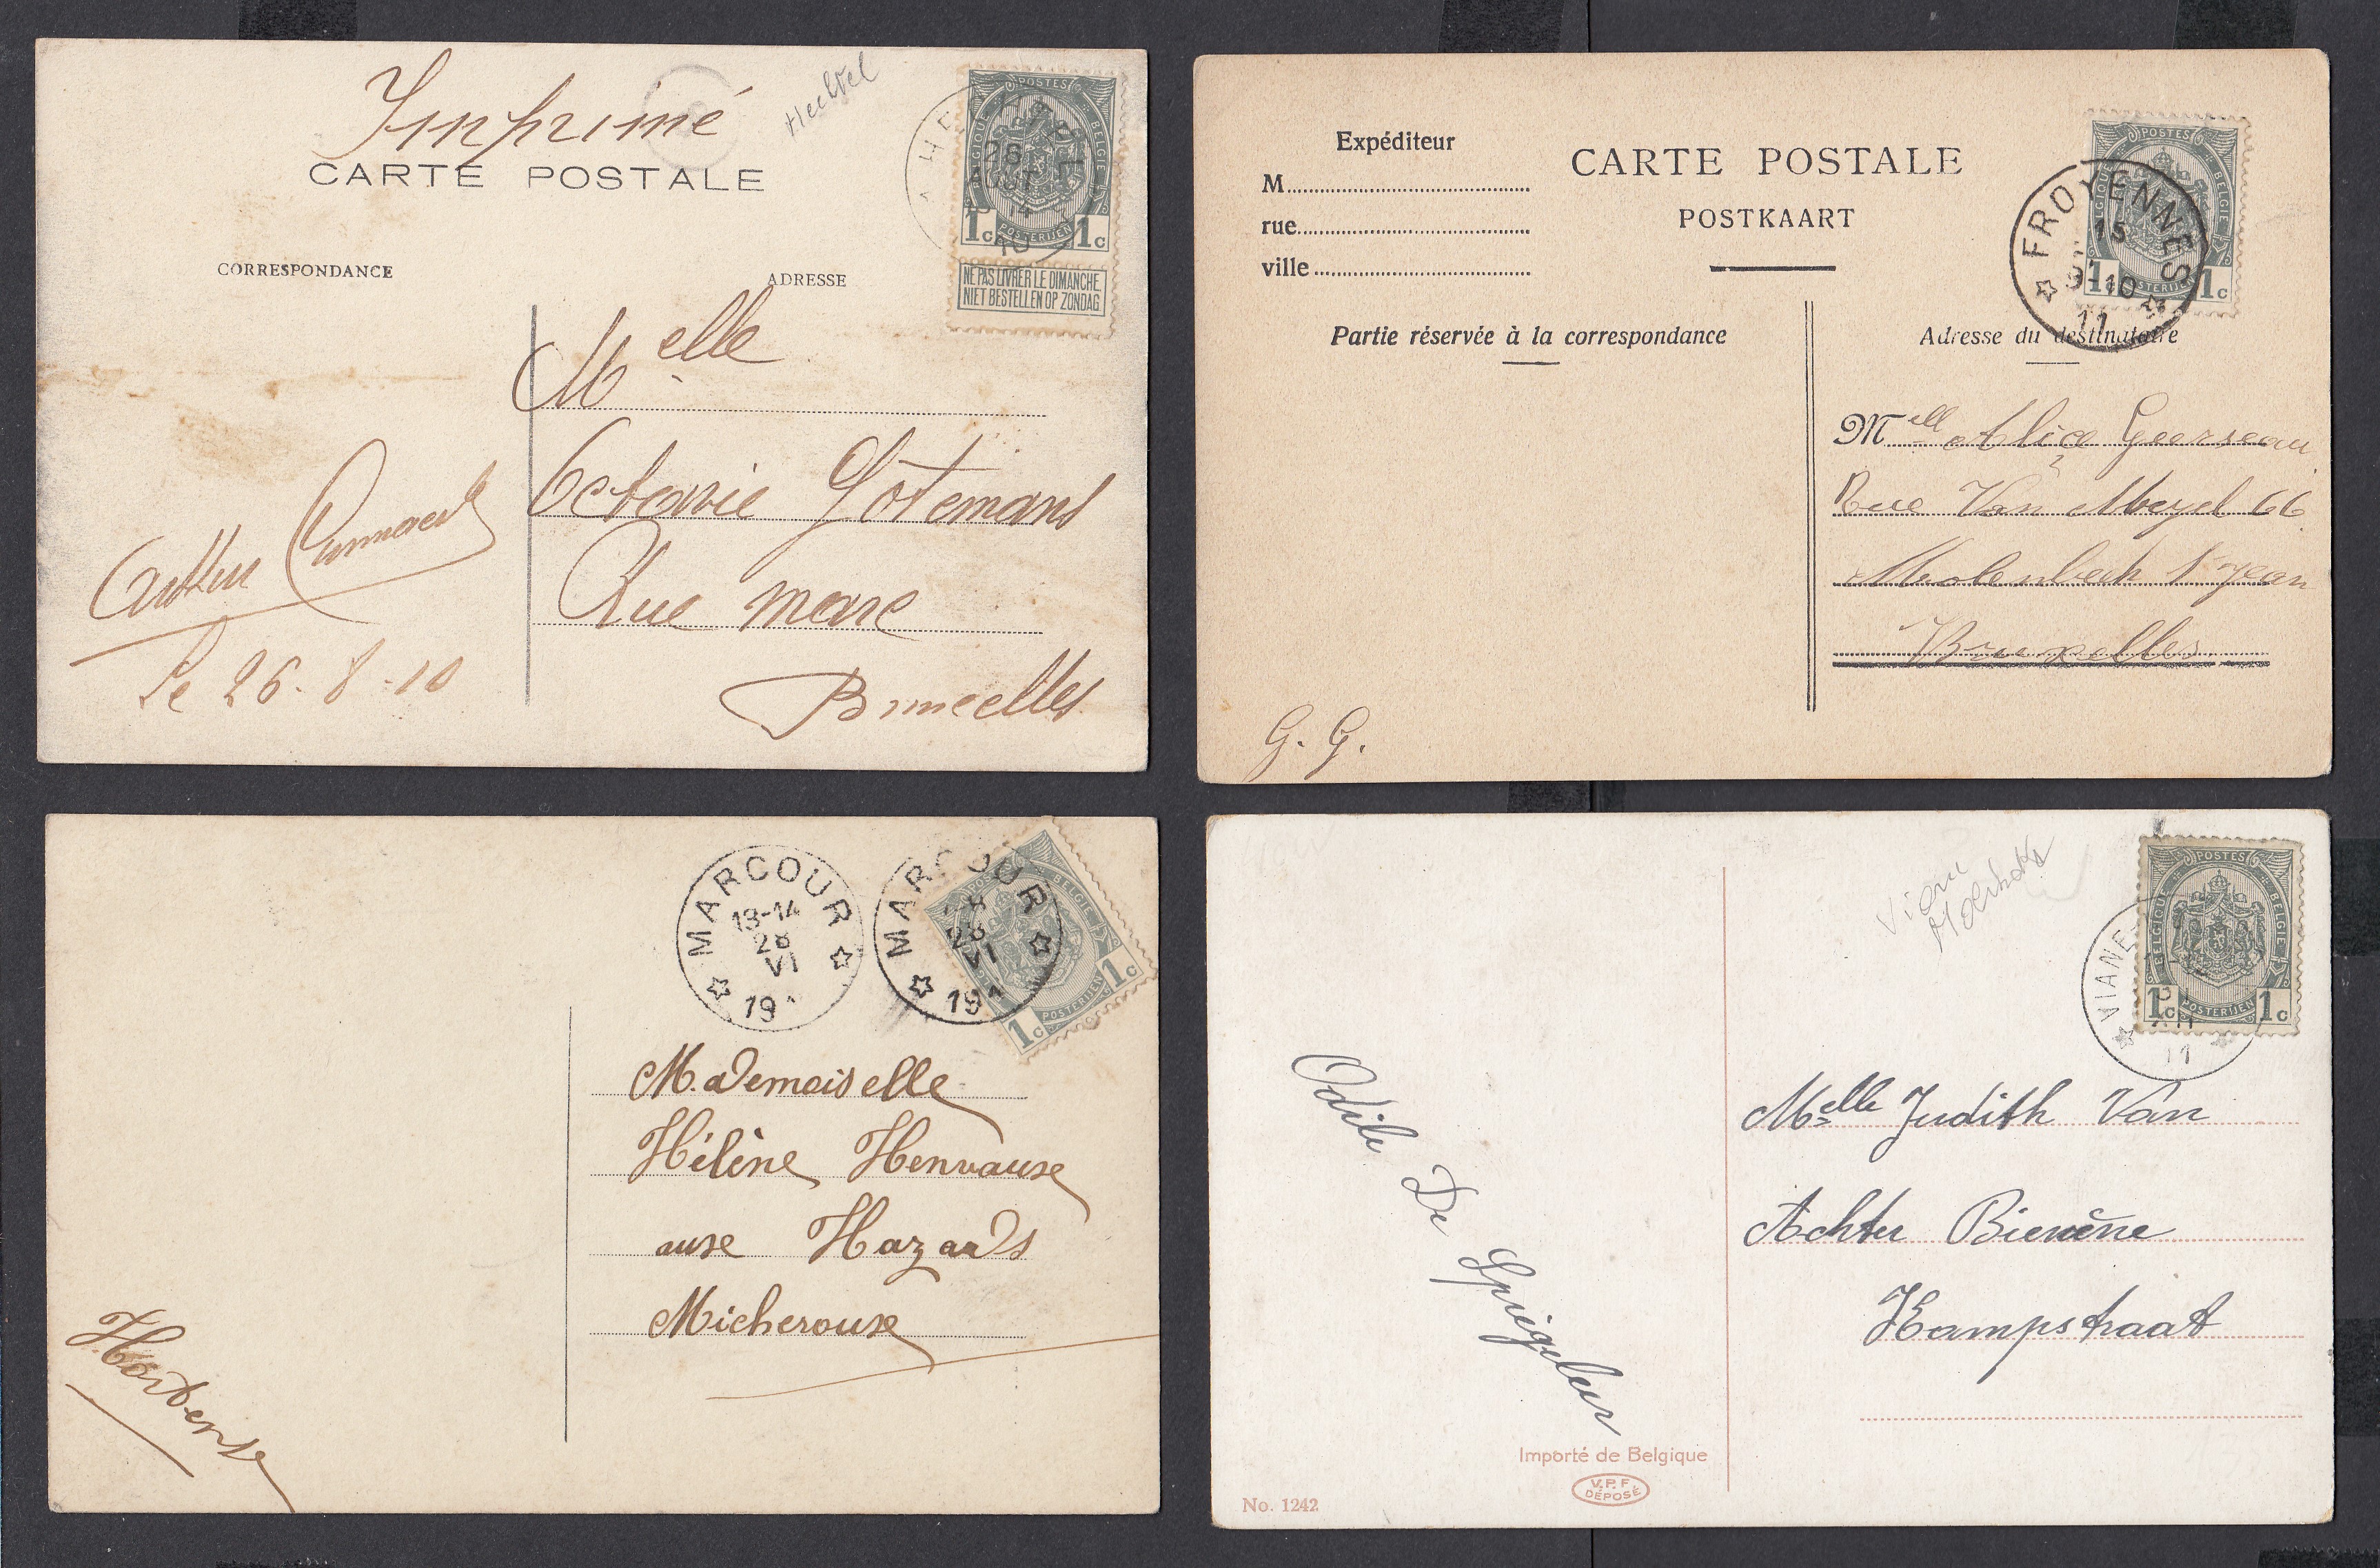 Imprimé
CARTE POSTALE
CORRESPONDANCE
ADRESSE
POSTES
BELGIQUE BELGIE
1c POSTERIJEN 1c
NE PAS LIVRER LE DIMANCHE
NIET BESTELLEN OP ZONDAG
28
AOUT
10
Melle
Octavie Gotemans
Rue
Le 26-8-10
Expéditeur
M
rue
ville
CARTE POSTALE
POSTKAART
POSTES
BELGIQUE BELGIE
1c POSTERIJEN 1c
FROYENNES
15
9-10
11
Partie réservée à la correspondance
Adresse du destinataire
Mell Alice Geerseau
Rue Van Meyel 66
Molenbeek St Jean
Bruxelles
G. G.
MARCOUR
13-14
28
VI
191
MARCOUR
28
VI
191
POSTES
BELGIE
1c POSTERIJEN 1c
Mademoiselle
Hélène Henvaux
aux Hazards
Micheroux
Hortense
Viane
POSTES
BELGIQUE BELGIE
1c POSTERIJEN 1c
VIANE
11
Melle Judith Van
Achter Bievène
Kampstraat
Odile De Spiegeleer
Importé de Belgique
V.P.F
DÉPOSÉ
No. 1242